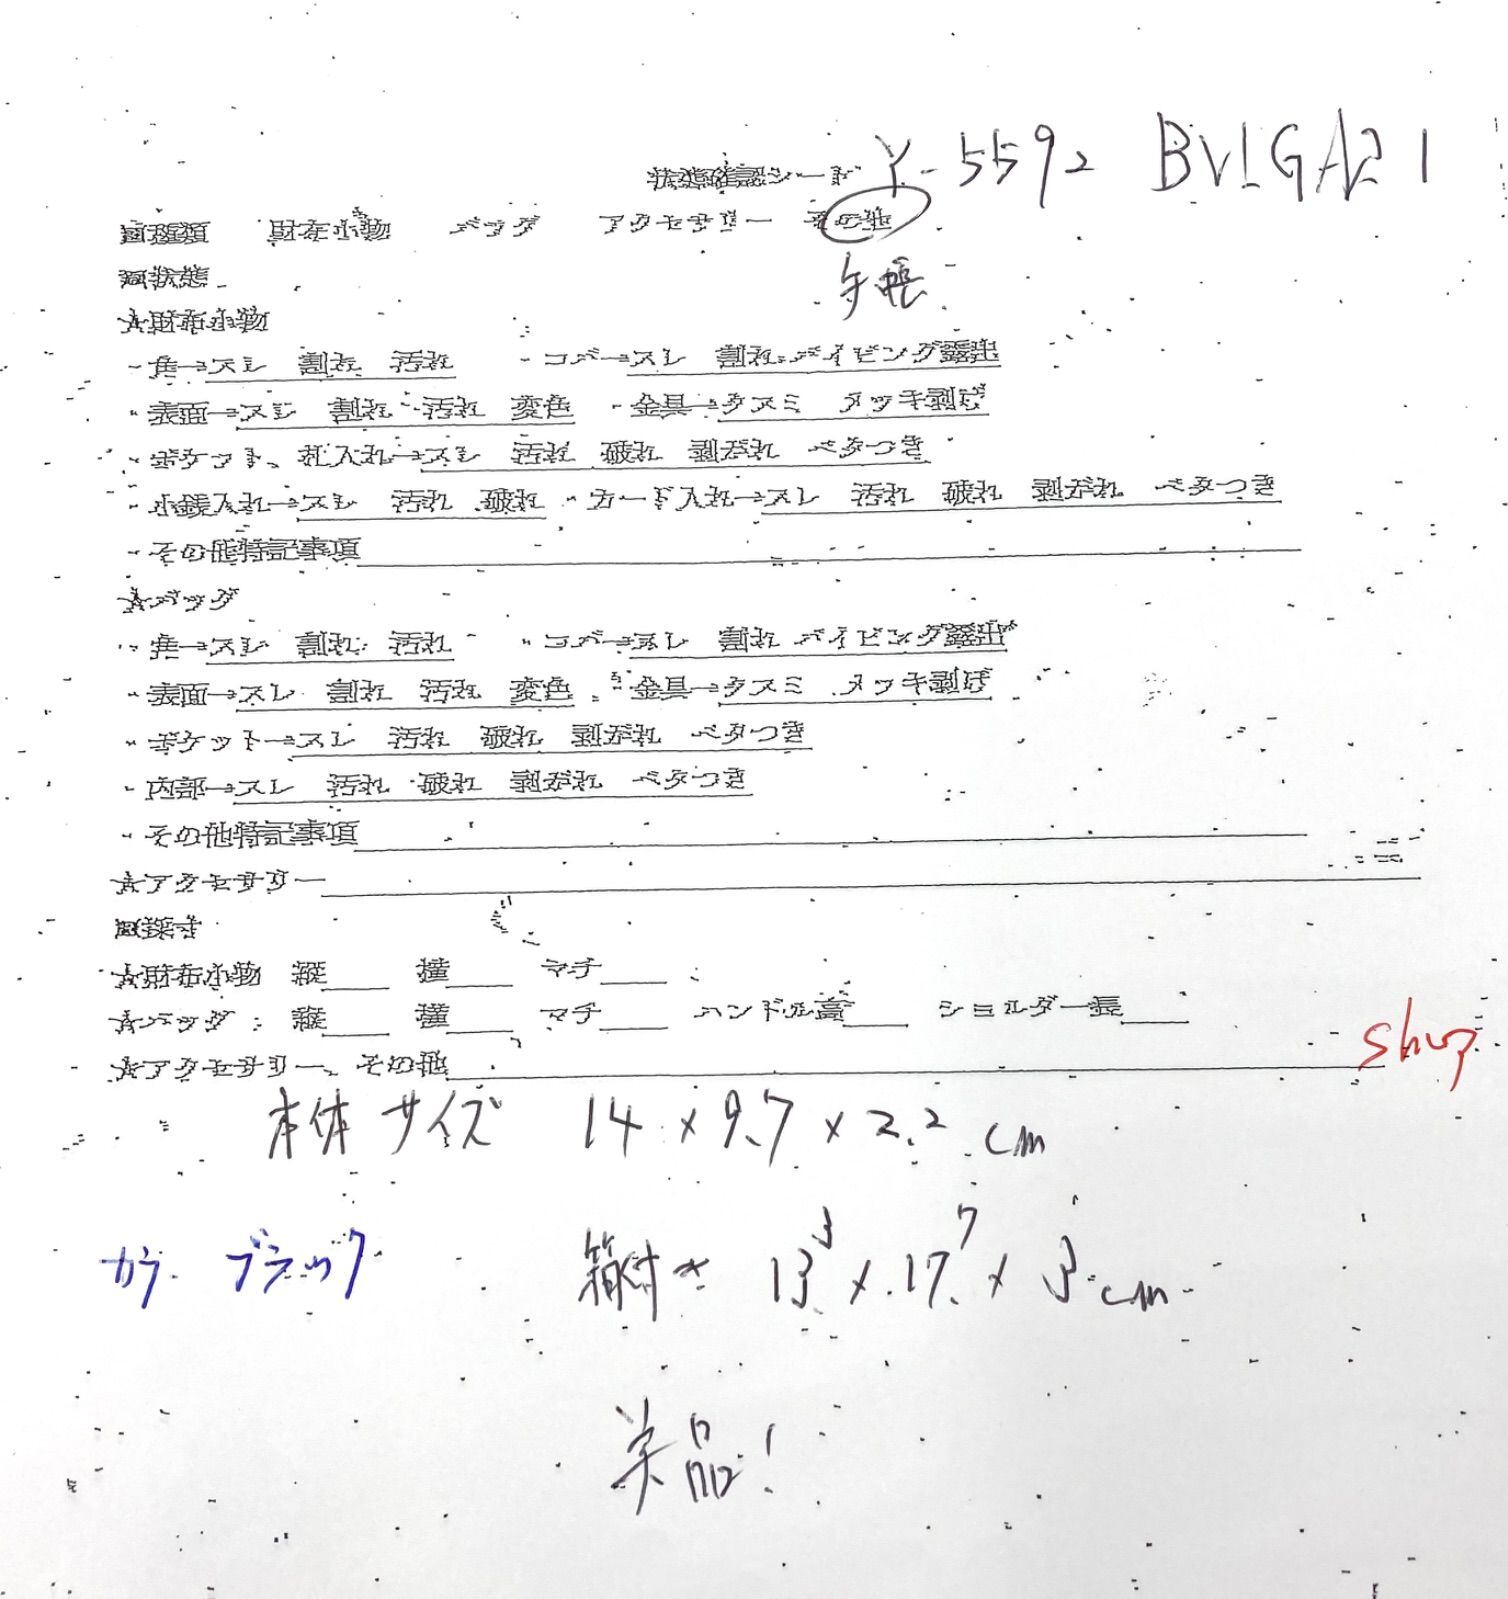 状態確認シート Y-5592 BVLGARI
□種類 財布小物 バッグ アクセサリー その他
手帳
□状態
☆財布小物
・角→スレ 割れ 汚れ ・コバ→スレ 割れ パイピング露出
・表面→スレ 割れ 汚れ 変色 ・金具→クスミ メッキ剥げ
・ポケット、札入れ→スレ 汚れ 破れ 剥がれ ベタつき
・小銭入れ→スレ 汚れ 破れ ・カード入れ→スレ 汚れ 破れ 剥がれ ベタつき
・その他特記事項
☆バッグ
・角→スレ 割れ 汚れ ・コバ→スレ 割れ パイピング露出
・表面→スレ 割れ 汚れ 変色 ・金具→クスミ メッキ剥げ
・ポケット→スレ 汚れ 破れ 剥がれ ベタつき
・内部→スレ 汚れ 破れ 剥がれ ベタつき
・その他特記事項
☆アクセサリー
□採寸
☆財布小物 縦 横 マチ
☆バッグ 縦 横 マチ ハンドル高 ショルダー長
☆アクセサリー、その他
本体サイズ 14×9.7×2.2cm
カラー ブラック 箱付き 13.3×17.7×3cm
美品!